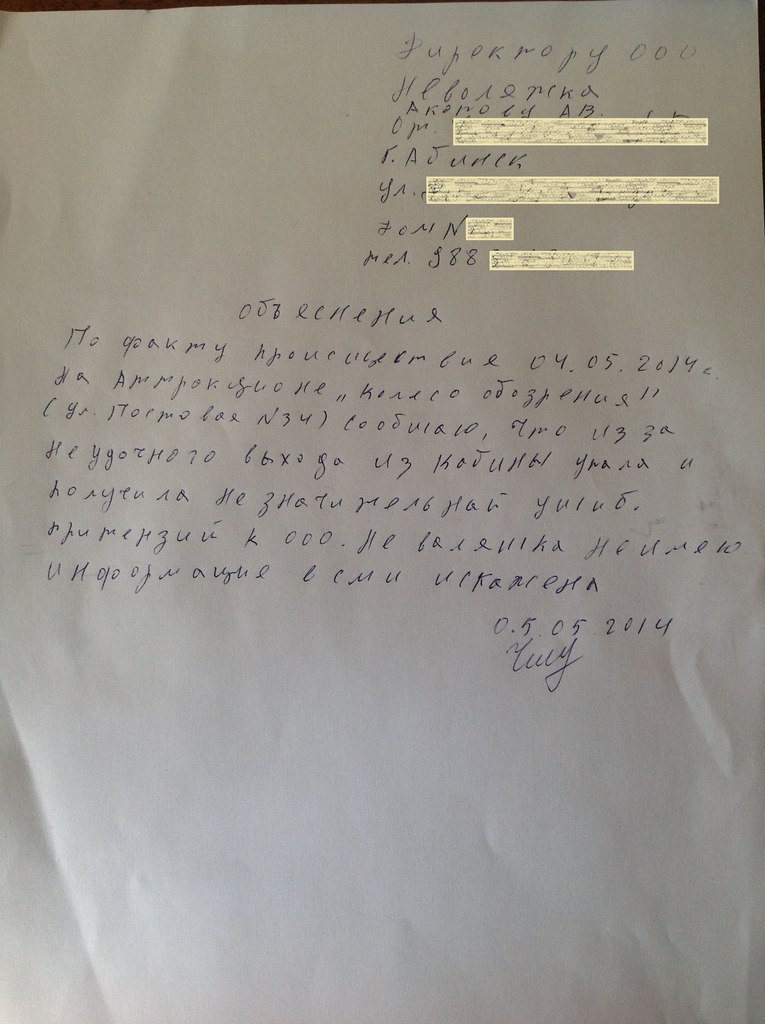 Директору ООО
Неволяжка
Акопову АВ.
От.
г. Абинск
ул.
дом №
тел. 988
объеснения
По факту происшествия 04.05.2014г.
На Аттракционе „Колесо обозрения"
(ул. Постовая №34) сообщаю, что из за
Не удочного выхода из кабины упала и
получила не значительный ушиб.
притензий к ООО. Не валяшка не имею
информацие в сми искажена
0.5.05.2014